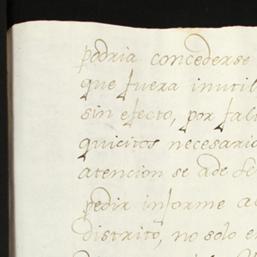 podria concederse
que fuera inutil
sin efecto, por fal
quicitos necesario
atencion se ade se
pedir informe a
distrito, no solo e